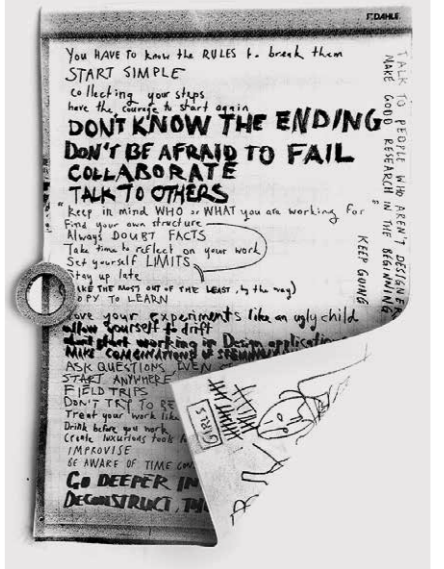 F.DAHLE
You HAVE TO know the RULES to break them
START SIMPLE
collecting your steps
have the courage to start again
DON'T KNOW THE ENDING
DON'T BE AFRAID TO FAIL
COLLABORATE
TALK TO OTHERS
"Keep in mind WHO or WHAT you are working for"
Find your own structure
Always DOUBT FACTS
Take time to reflect on your work
Set yourself LIMITS
Stay up late
(MAKE THE MOST OUT OF THE LEAST, by the way)
COPY TO LEARN
Love your experiments like an ugly child
allow yourself to drift
don't start working in Design application
MAKE COMBINATIONS OF
ASK QUESTIONS, EVEN
START ANYWHERE
FIELD TRIPS
DON'T TRY TO BE
Treat your work like
Drink before you work
Create luxurious
IMPROVISE
BE AWARE OF TIME
GO DEEPER IN
DECONSTRUCT,
TALK TO PEOPLE WHO AREN'T DESIGNER
MAKE GOOD RESEARCH IN THE BEGINNING
KEEP GOING
GIRLS